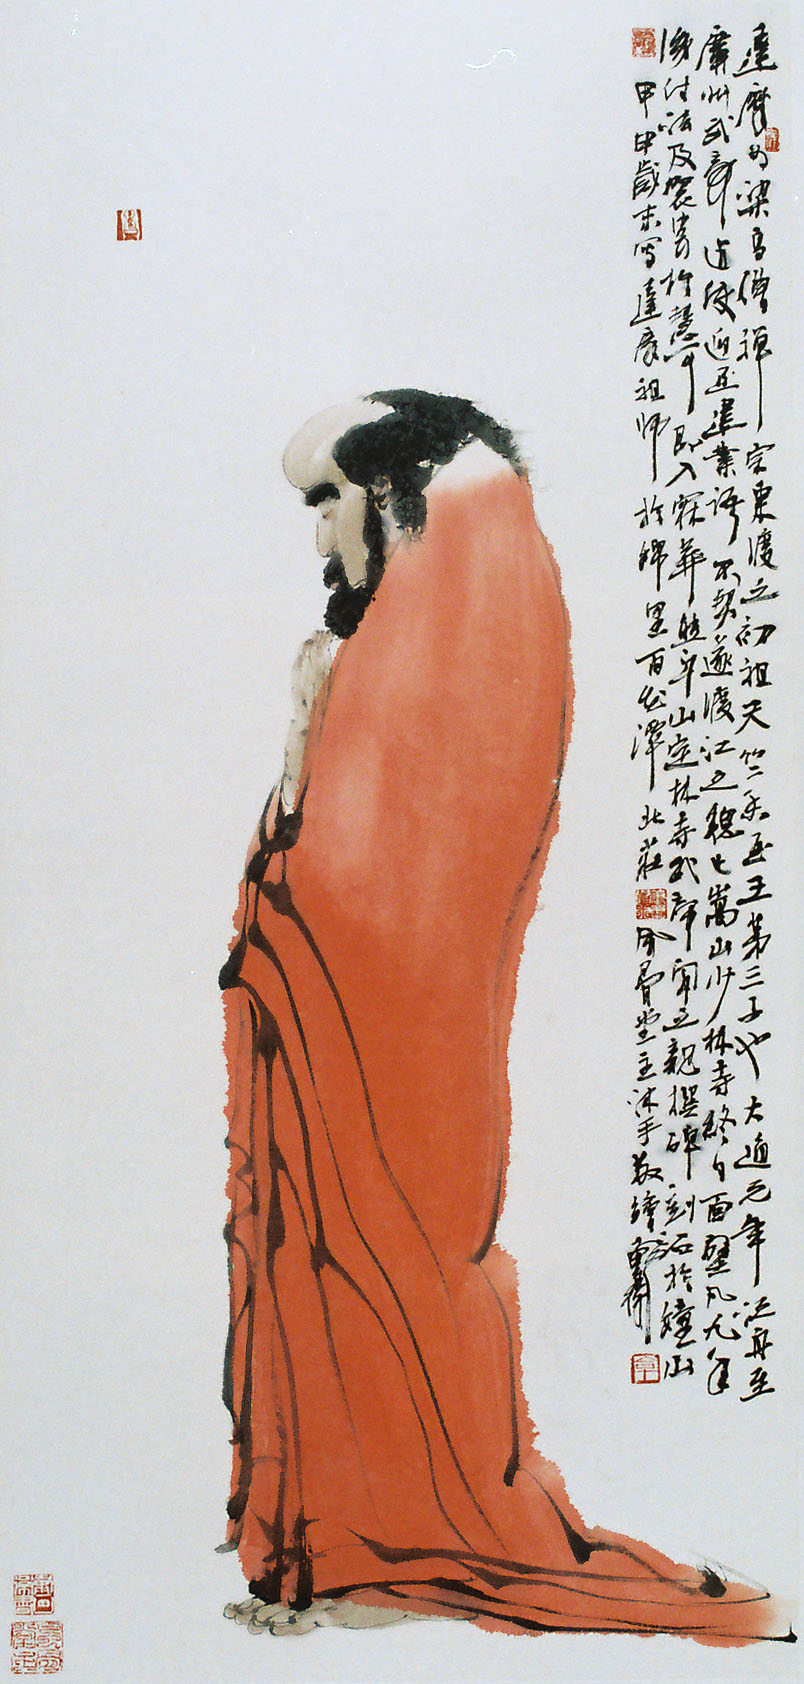 達摩为梁高僧禅宗東渡之初祖天竺香至王第三子也大通元年泛舟至
廣州武帝遣使迎至建業語不契遂渡江之魏止嵩山少林寺終日面壁凡九年
後付法及袈裟於慧可即入寂葬熊耳山定林寺武帝聞之親撰碑刻石於鐘山
甲申歲末寫達摩祖師於錦里百花潭北莊 堂主沐手敬繪